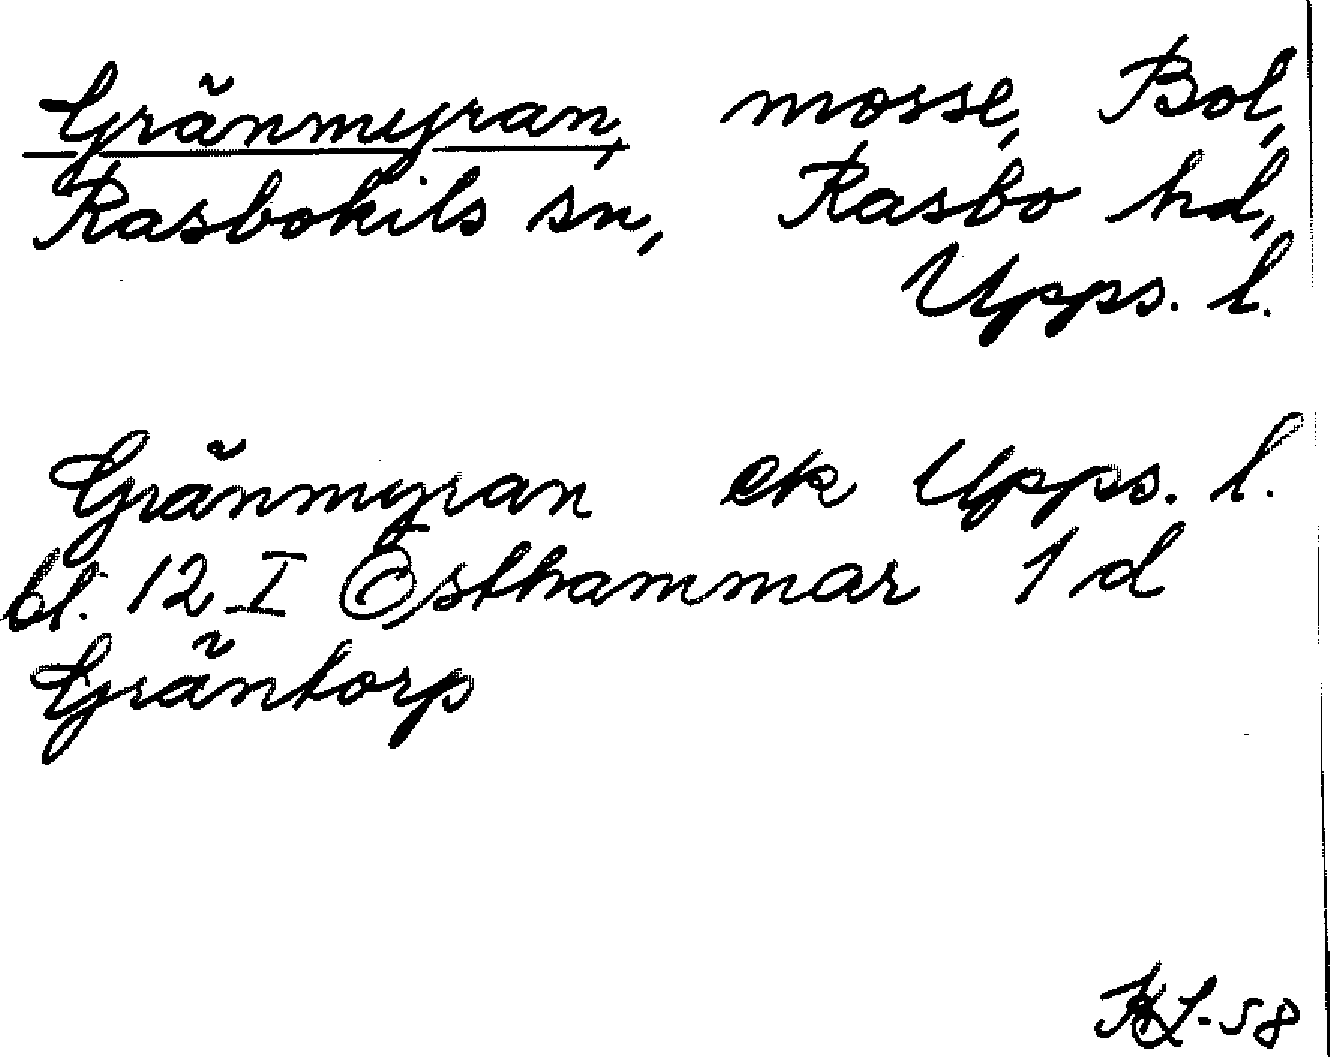 Gränmyran, mosse, Bol,
Rasbokils sn, Rasbo hd,
Upps. l.
Gränmyran ek Upps. l.
bl. 12 I Östhammar 1 d
Gräntorp
-58